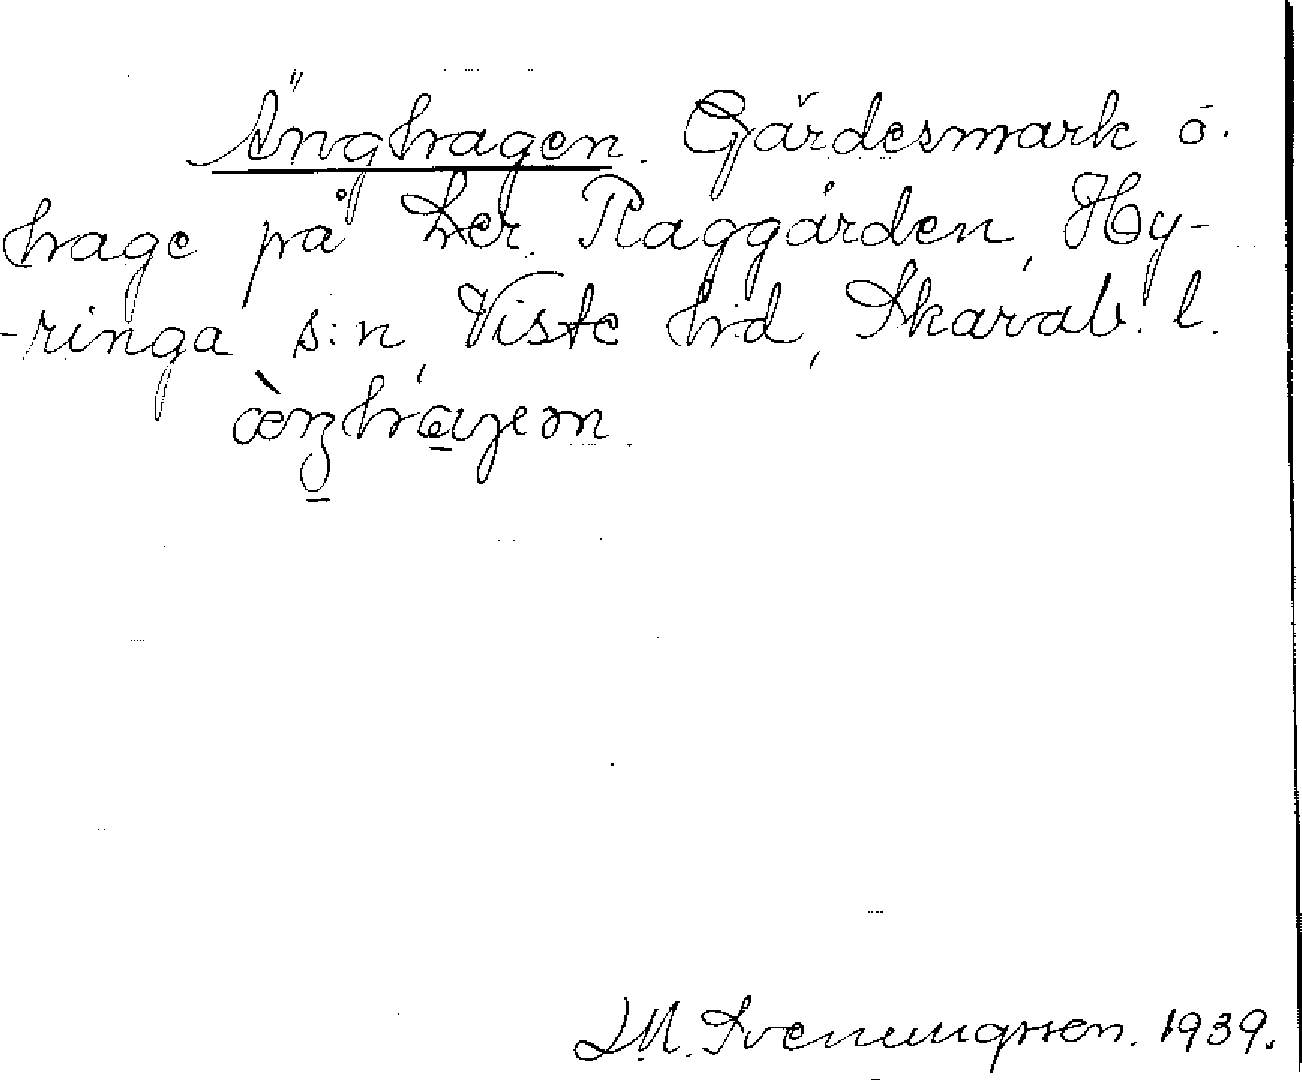 Änghagen. Gärdesmark o.
hage på her. Raggården, Hy-
-ringa s:n, Viste hd, Skarab. l.
æ̀ŋha̱ɡen.
I.M. Svenungsson. 1939.